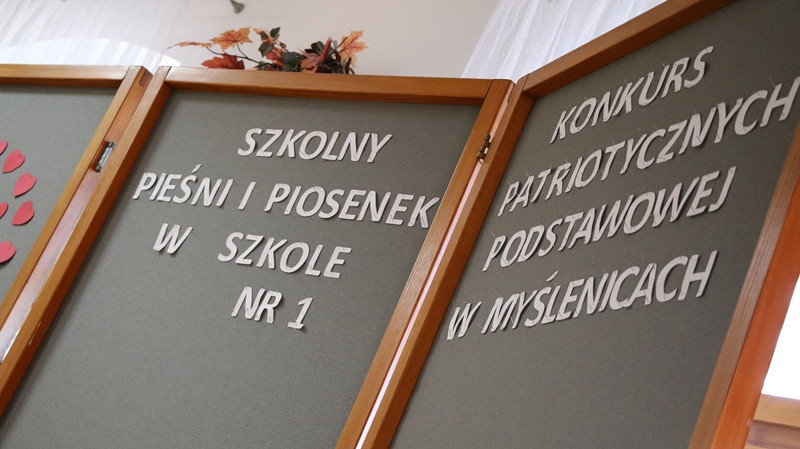 SZKOLNY KONKURS
PIEŚNI I PIOSENEK PATRIOTYCZNYCH
W SZKOLE PODSTAWOWEJ
NR 1 W MYŚLENICACH